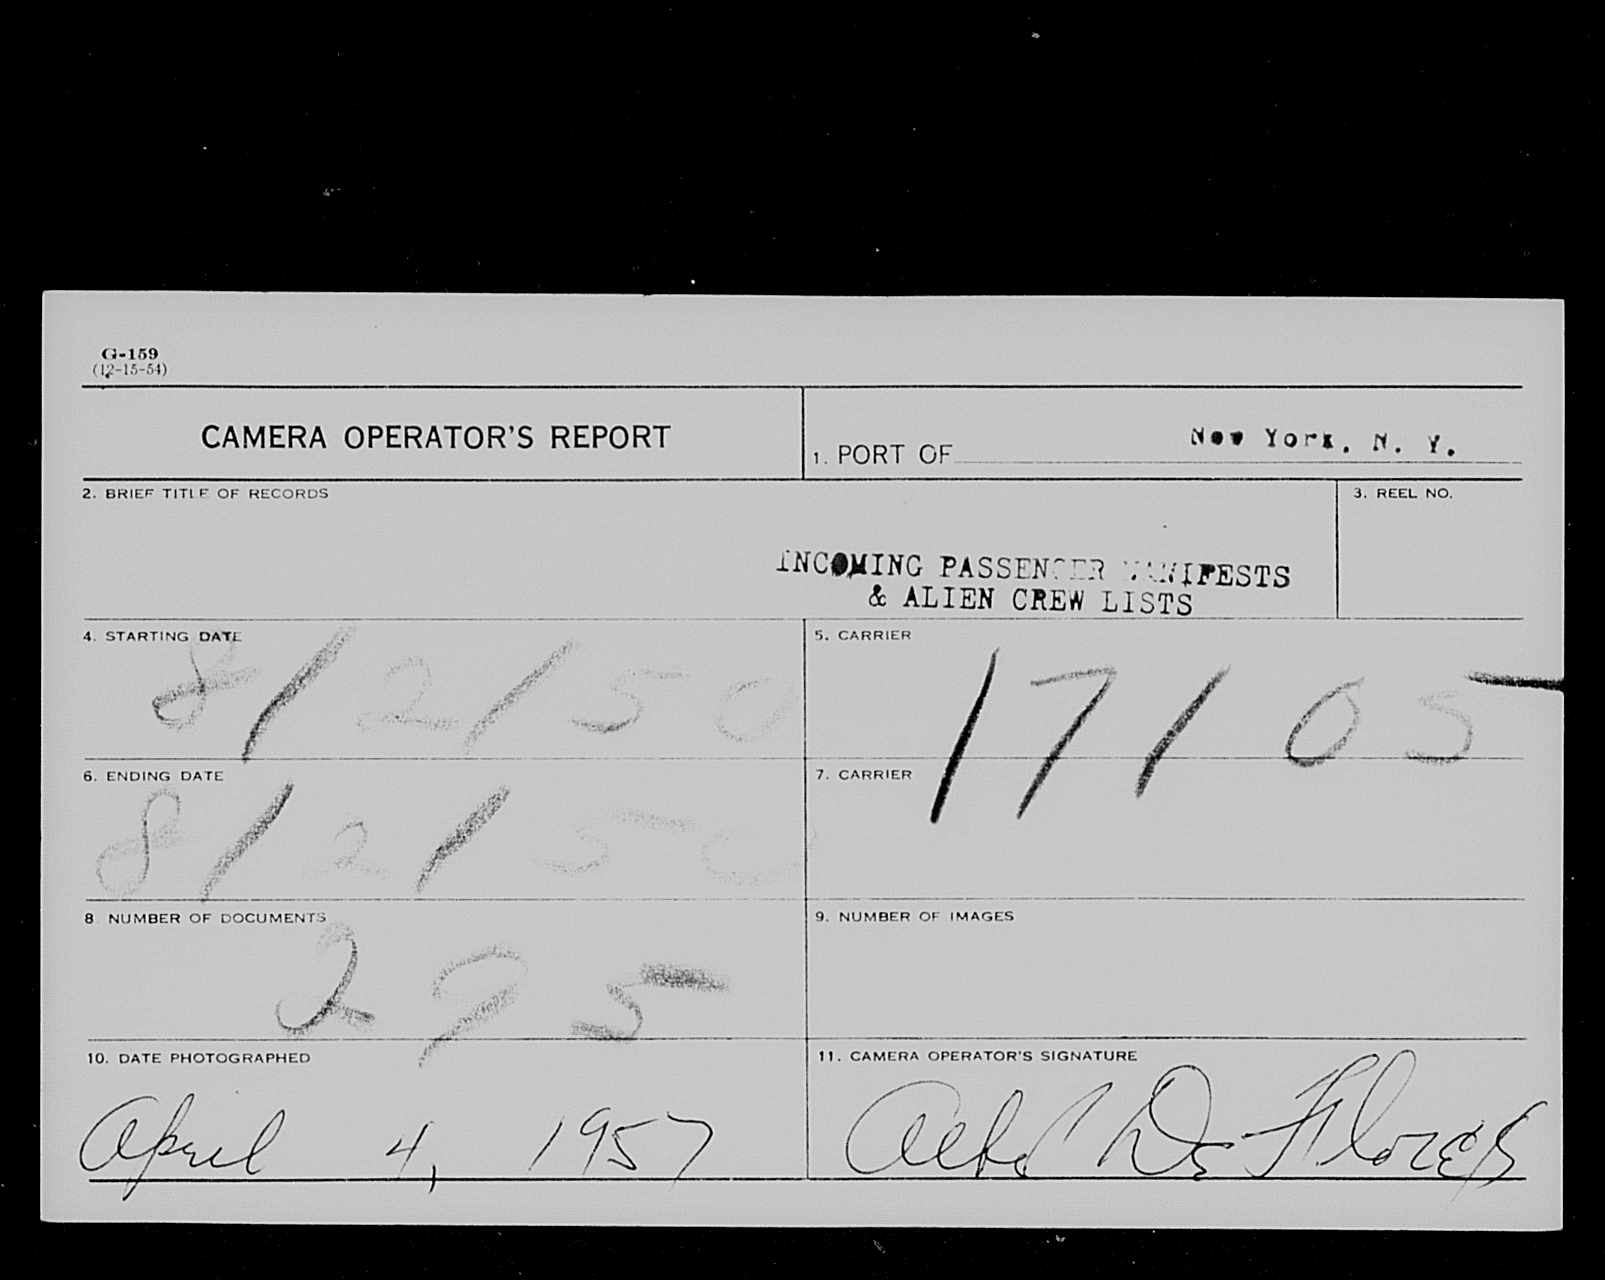 G-159
(12-15-54)
CAMERA OPERATOR'S REPORT
1. PORT OF New York, N. Y.
2. BRIEF TITLE OF RECORDS
3. REEL NO.
INCOMING PASSENGER MANIFESTS
& ALIEN CREW LISTS
4. STARTING DATE
8/2/50
5. CARRIER
17105
6. ENDING DATE
8/2/50
7. CARRIER
8 NUMBER OF DOCUMENTS
295
9. NUMBER OF IMAGES
10. DATE PHOTOGRAPHED
April 4, 1957
11. CAMERA OPERATOR'S SIGNATURE
De Flores